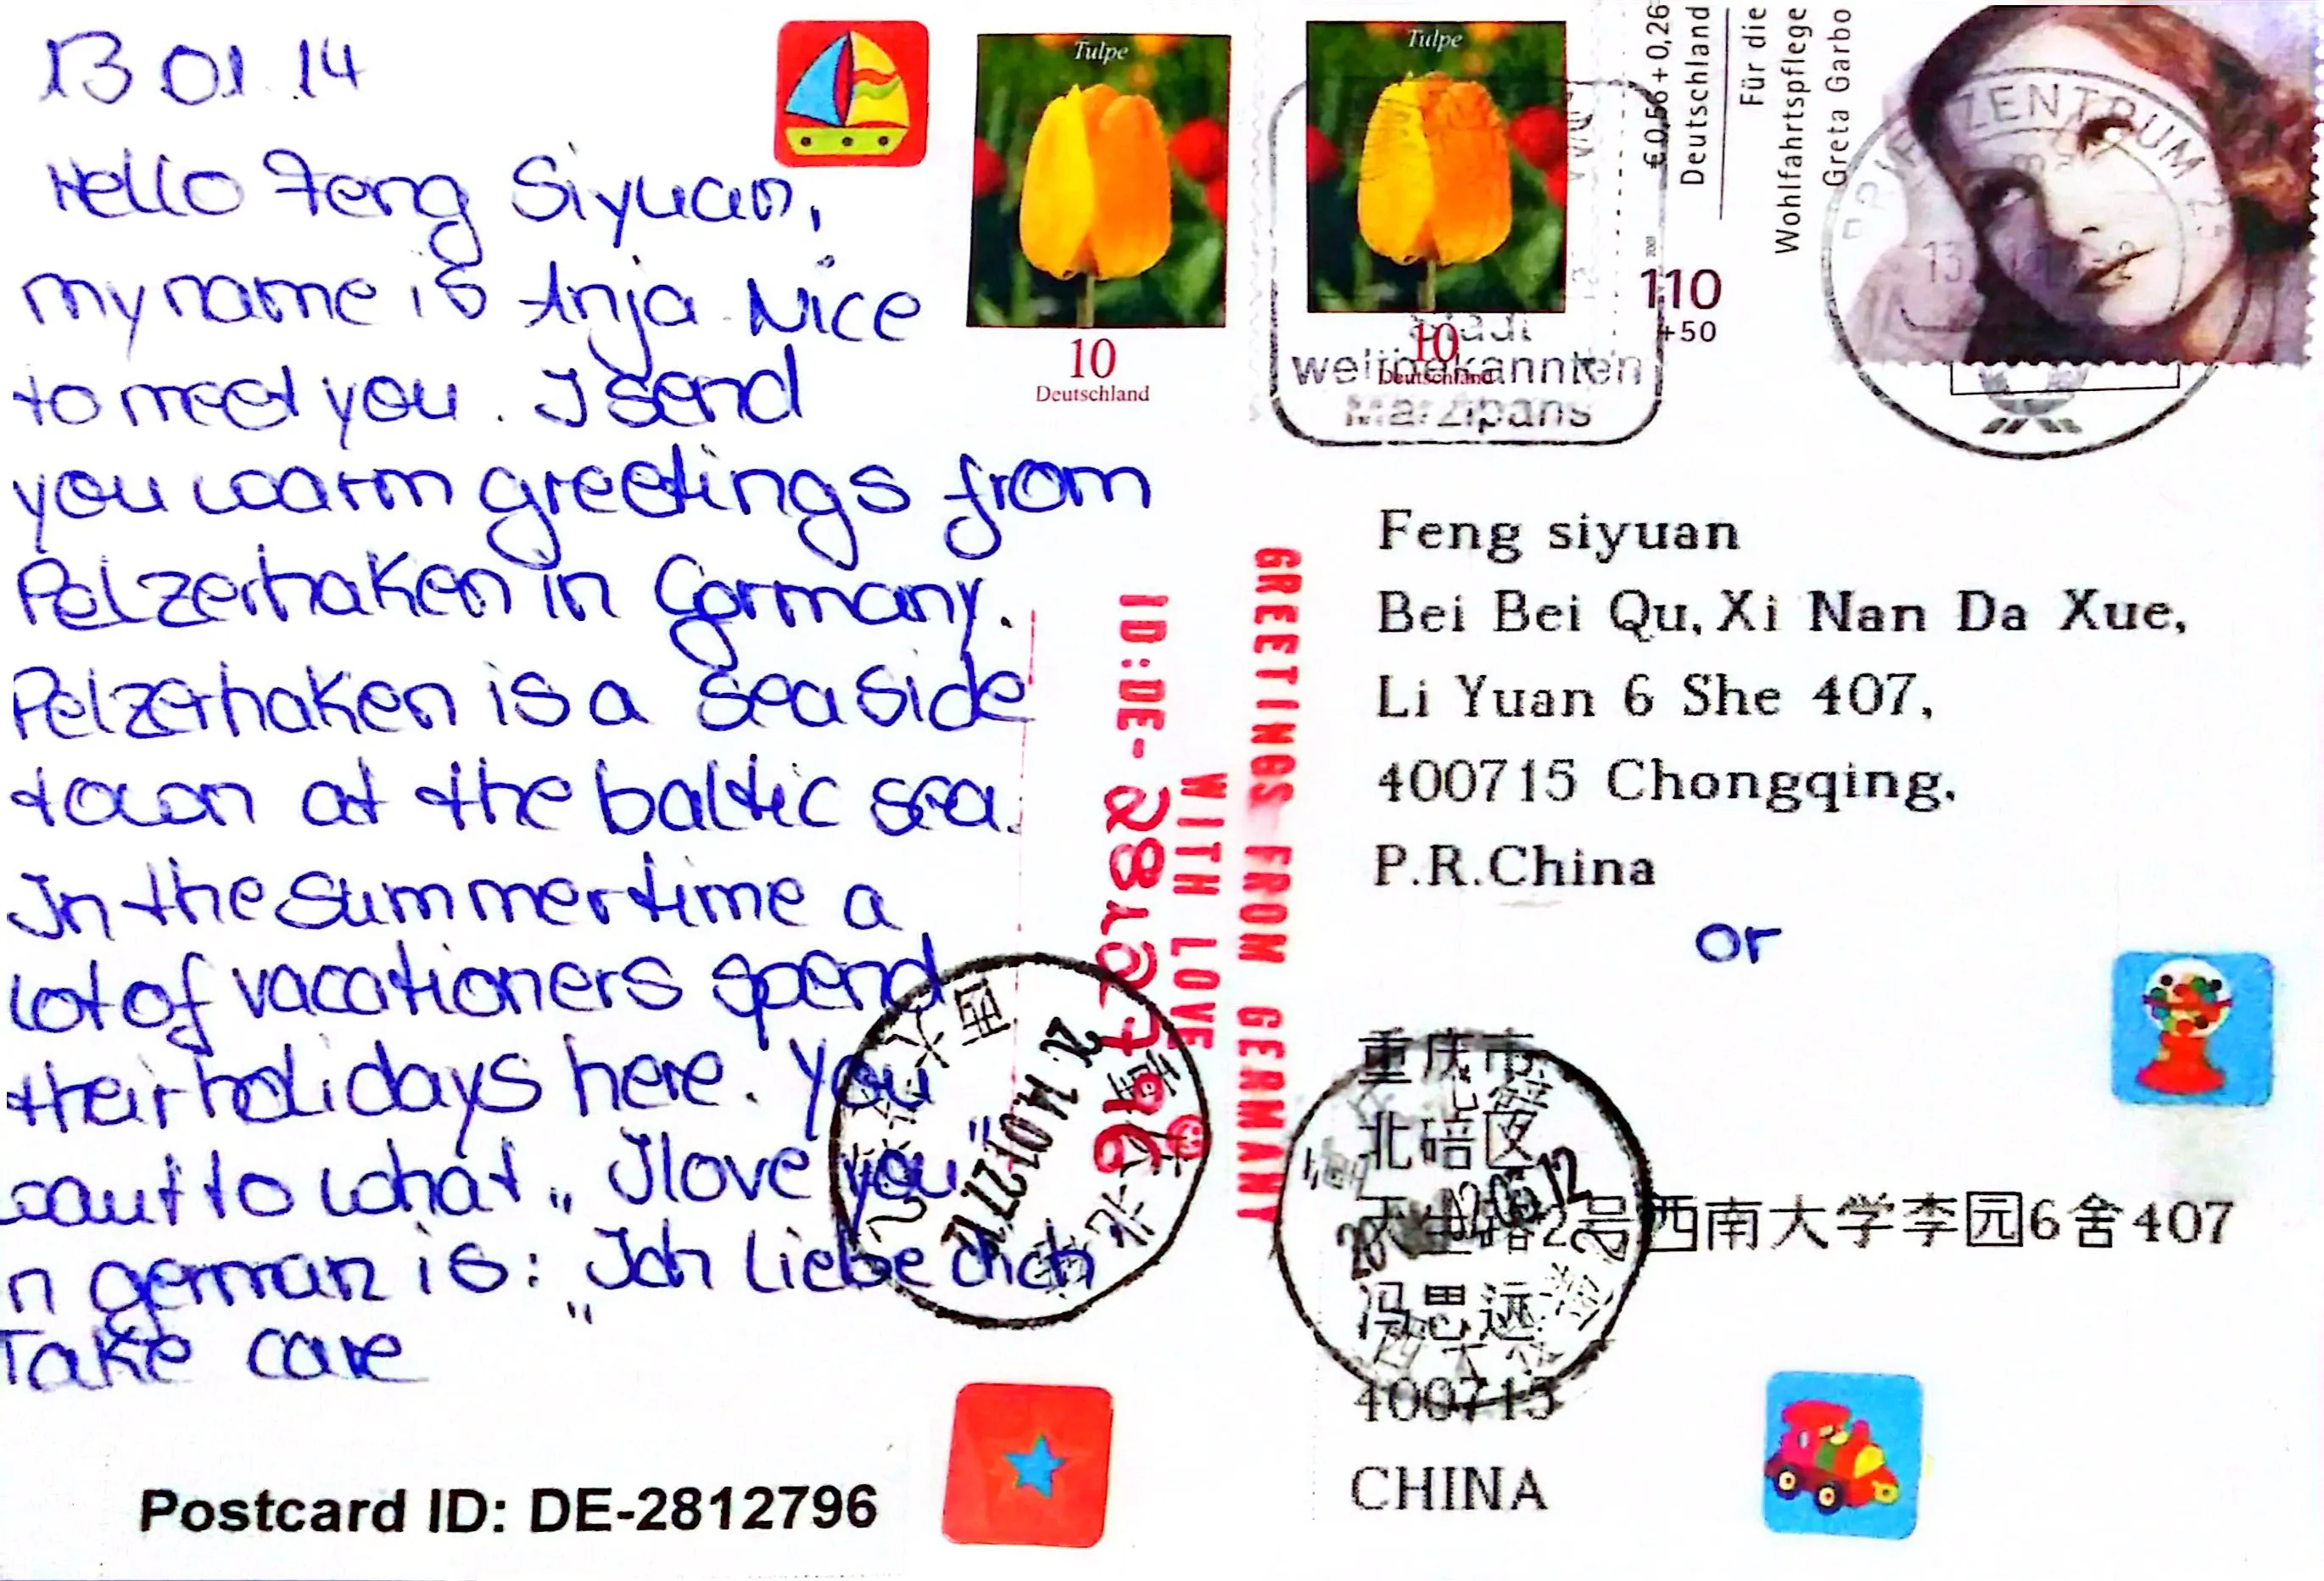 13 01. 14
Hello Feng Siyuan,
my name is Anja. Nice
to meet you. I send
you warm greetings from
Pelzerhaken in Germany.
Pelzerhaken is a seaside
town at the baltic sea.
In the summertime a
lot of vacationers spend
their holidays here. You
want to what „I love you"
n german is:
„Ich liebe dich
Take care
Postcard ID: DE-2812796
Tulpe
10
Deutschland
Tulpe
10
Deutschland
Stadt
weltbekannten
Marzipans
€ 0,56 + 0,26
Deutschland
Für die
Wohlfahrtspflege
Greta Garbo
110
+50
BRIEFZENTRUM
13
ID:DE- 2812796
WITH LOVE
GREETINGS FROM GERMANY
Feng siyuan
Bei Bei Qu,Xi Nan Da Xue,
Li Yuan 6 She 407,
400715 Chongqing,
P.R.China
or
重庆市
北碚区
天生路2号西南大学李园6舍407
冯思远
400715
CHINA